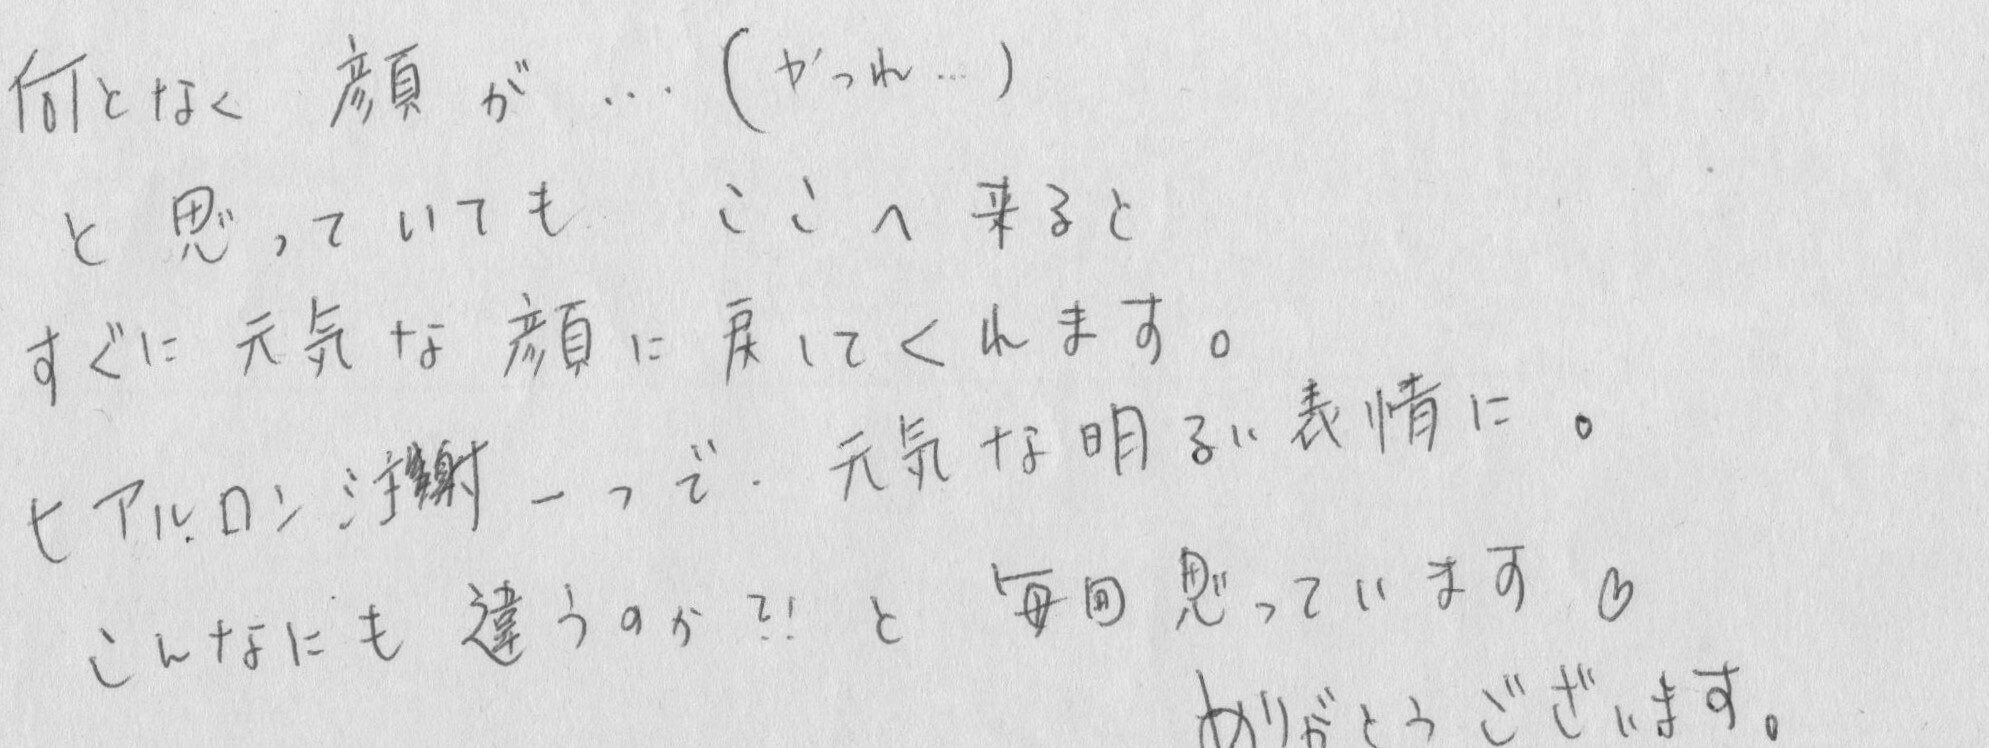 何となく 顔が…(やつれ…)
と思っていても ここへ来ると
すぐに元気な顔に戻してくれます。
ヒアルロン注射一つで. 元気な明るい表情に。
こんなにも違うのか?!と 毎回思っています♡
ありがとうございます。